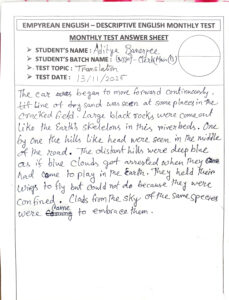 EMPYREAN ENGLISH – DESCRIPTIVE ENGLISH MONTHLY TEST
MONTHLY TEST ANSWER SHEET
➢ STUDENT'S NAME : Aditya Banerjee
➢ STUDENT'S BATCH NAME :
➢ TEST TOPIC : Translation
➢ TEST DATE : 13/11/2025
The car began to more forward continuously.
line of dry sand was seen at some places in the
cracked field. Large black rocks were come out
like the Earth's skeletons in the riverbeds. One
by one the hills like head were seen in the middle
of the road. The distant hills were deep blue
as if blue clouds got arrested when they
had come to play in the Earth. They held their
wigs to fly but could not do because they were
confined. from the sky of the same species
were came to embrace them.